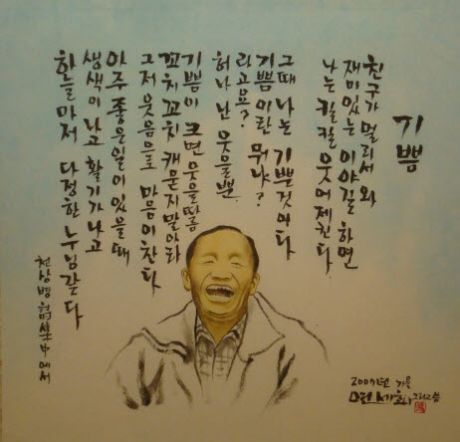 기쁨
친구가 멀리서 와
재미있는 이야길 하면
나는 킬킬 웃어 제친다
그때 나는 기쁜 것이다
기쁨이란 뭐냐?
라고요?
허나 난 웃을 뿐.
기쁨이 크면 웃을 따름
꼬치꼬치 캐묻지 말아라
그저 웃음으로 마음이 찬다
아주 좋은 일이 있을 때
생색이 나고 활기가 나고
하늘마저 다정한 누님 같다
천상병 中에서
2007년 가을